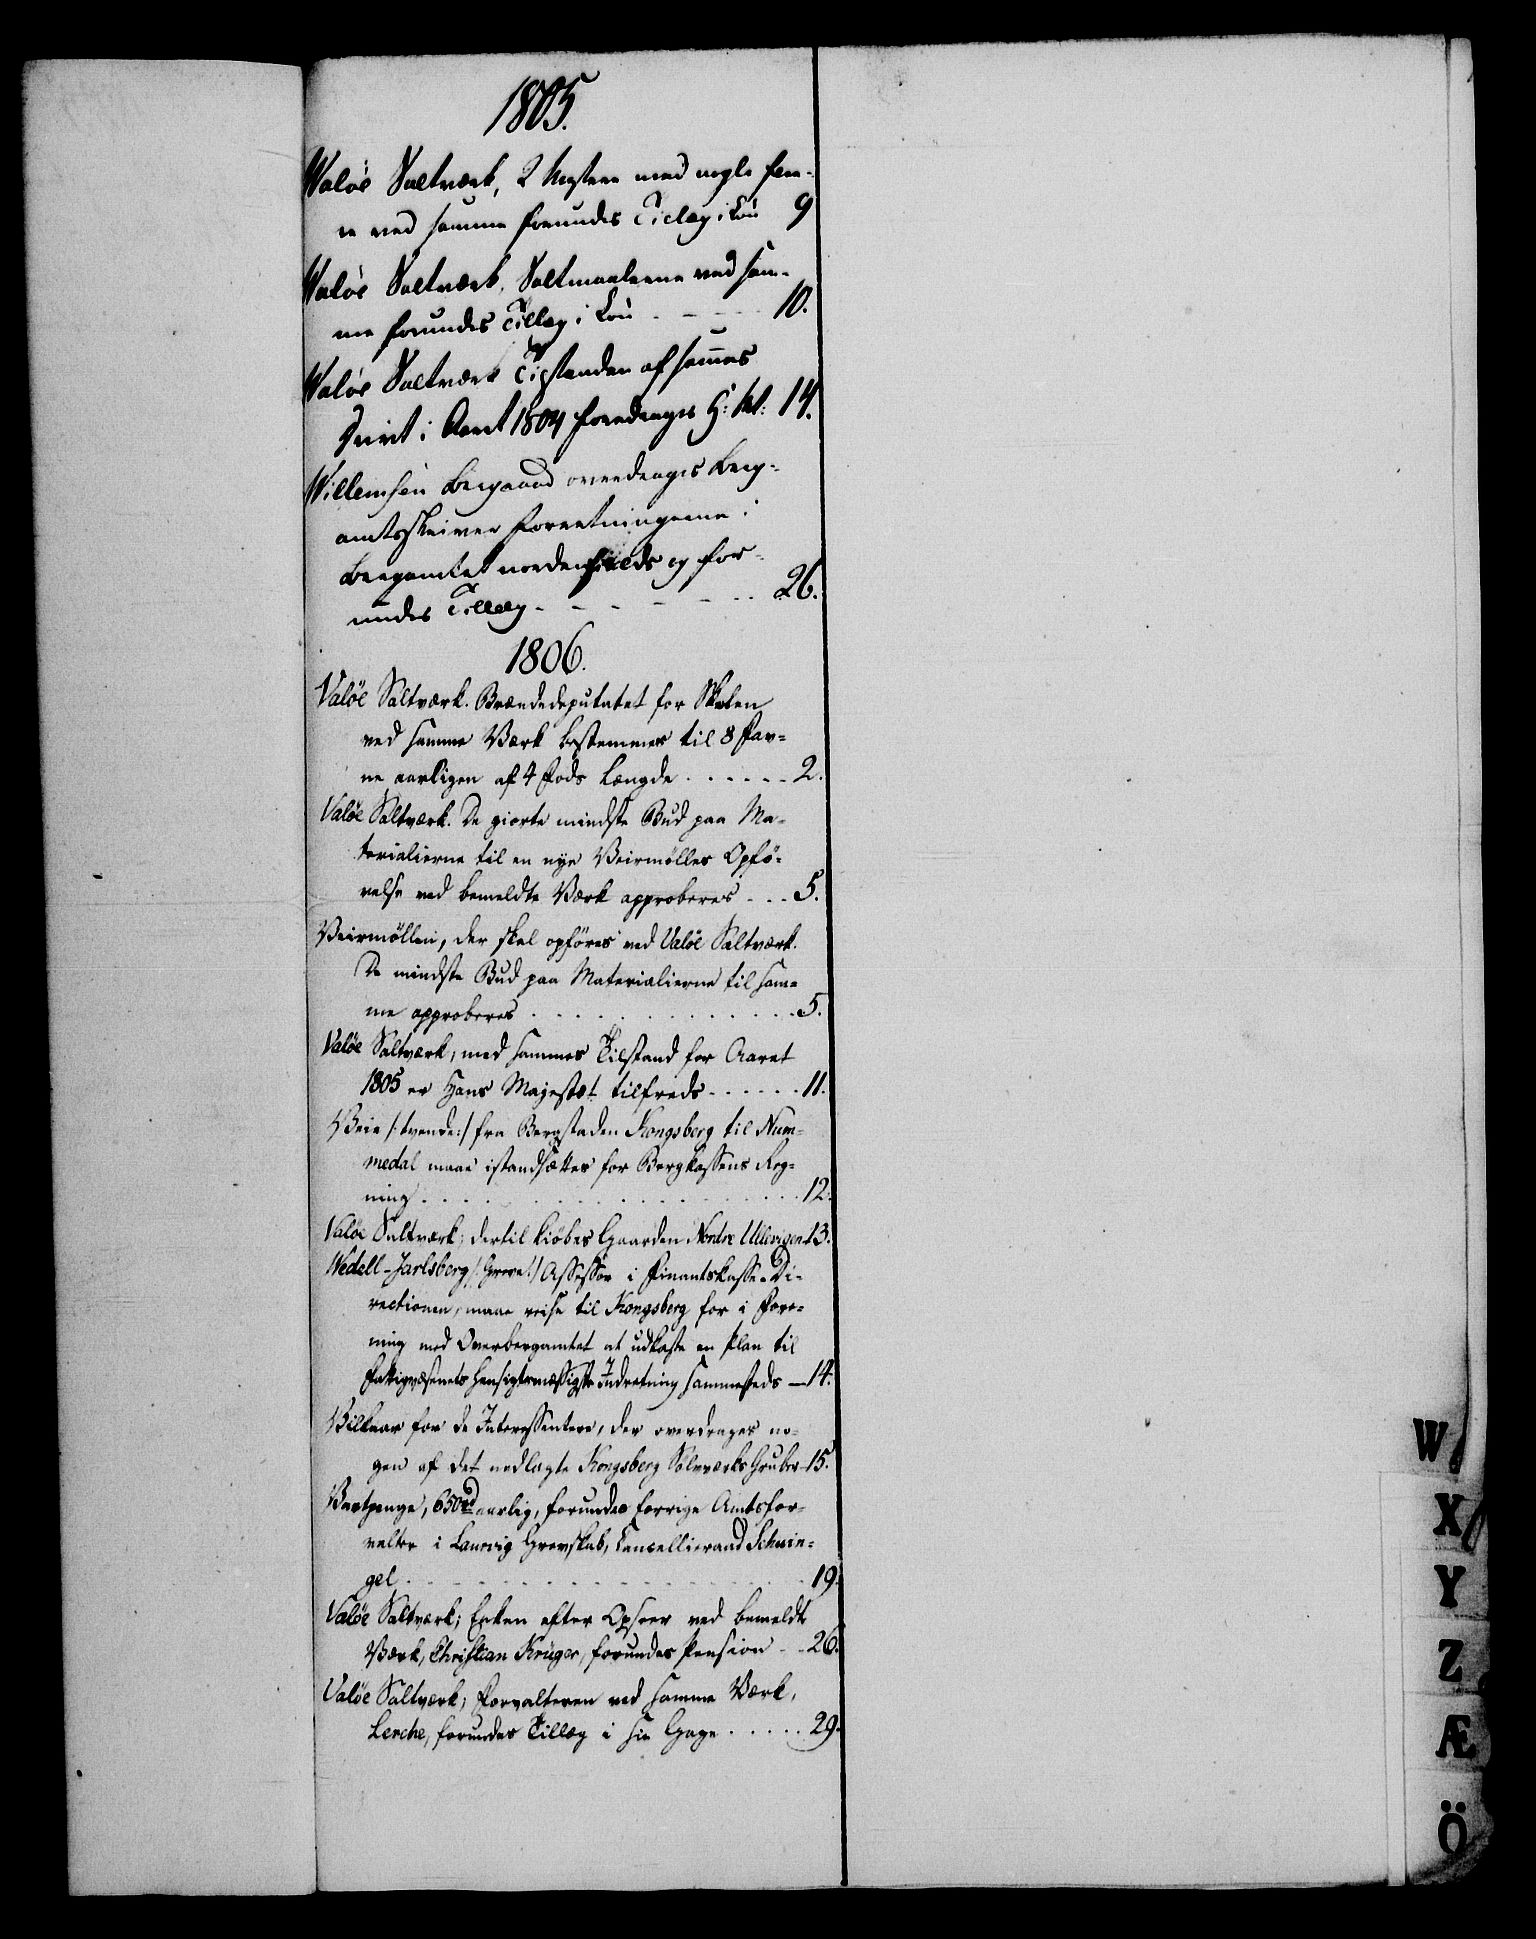 1805.
Waløe Saltværk, 2 Mestere med nogle fle-
re ved samme forundes Tillæg i Løn 9
Waløe Saltværk, Saltmaalerne ved sam-
me forundes Tillæg i Løn - - - - 10.
Waløe Saltværk Tilstanden af sammes
Drivt i Aaret 1804 foredrages H: M: 14.
Willemsen Biergraad overdrages Berg-
amtsskriver Forretningerne i
Bergamtet nordenfields og for-
undes Tillæg - - - - - - - 26.
1806.
Valøe Saltværk. Brændedeputatet for Skolen
ved samme Værk bestemmes til 8 Fav=
ne aarligen af 4 Fods Længde . . . . . . 2.
Valøe Saltværk. De giorte mindste Bud paa Ma-
terialierne til en nye Veirmølles Opfö-
relse ved bemeldte Værk approberes . . . 5.
Veirmøllen, der skal opføres ved Valøe Saltværk.
De mindste Bud paa Materialierne til sam=
me approberes . . . . . . . . . . . . 5.
Valøe Saltværk, med sammes Tilstand for Aaret
1805 er Hans Majestæt tilfreds . . . . . . 11.
Veie /: tvende :/ fra Bergstaden Kongsberg til Num-
medal maae istandsættes for Bergkassens Reg-
ning . . . . . . . . . . . . . . . . 12.
Valøe Saltværk; dertil kiøbes Gaarden Nordre Ullevigen 13.
Wedell-Jarlsberg /: Greve :/ Assessor i Finantskasse-Di-
rectionen, maae reise til Kongsberg for i Fore-
ning med Overbergamtet at udkaste en Plan til
Fattigvæsenets hensigtsmæssigste Indretning sammesteds — 14.
Vilkaar for de Interessentere, der overdrages no-
gen af det nedlagte Kongsberg Sølvværks Gruber 15.
Vartpenge, 650 rd aarlig, forundes forrige Amtsfor-
valter i Laurvig Grevskab, Cancellieraad Schwin=
gel . . . . . . . . . . . . . . . . 19.
Valøe Saltværk; Enken efter Opseer ved bemeldte
Værk, Christian Krüger, forundes Pension - - 26.
Valøe Saltværk; Forvalteren ved samme Værk,
Lerche, forundes Tillæg i sin Gage . . . . . 29.
W
X
Y
Z
Æ
Ö